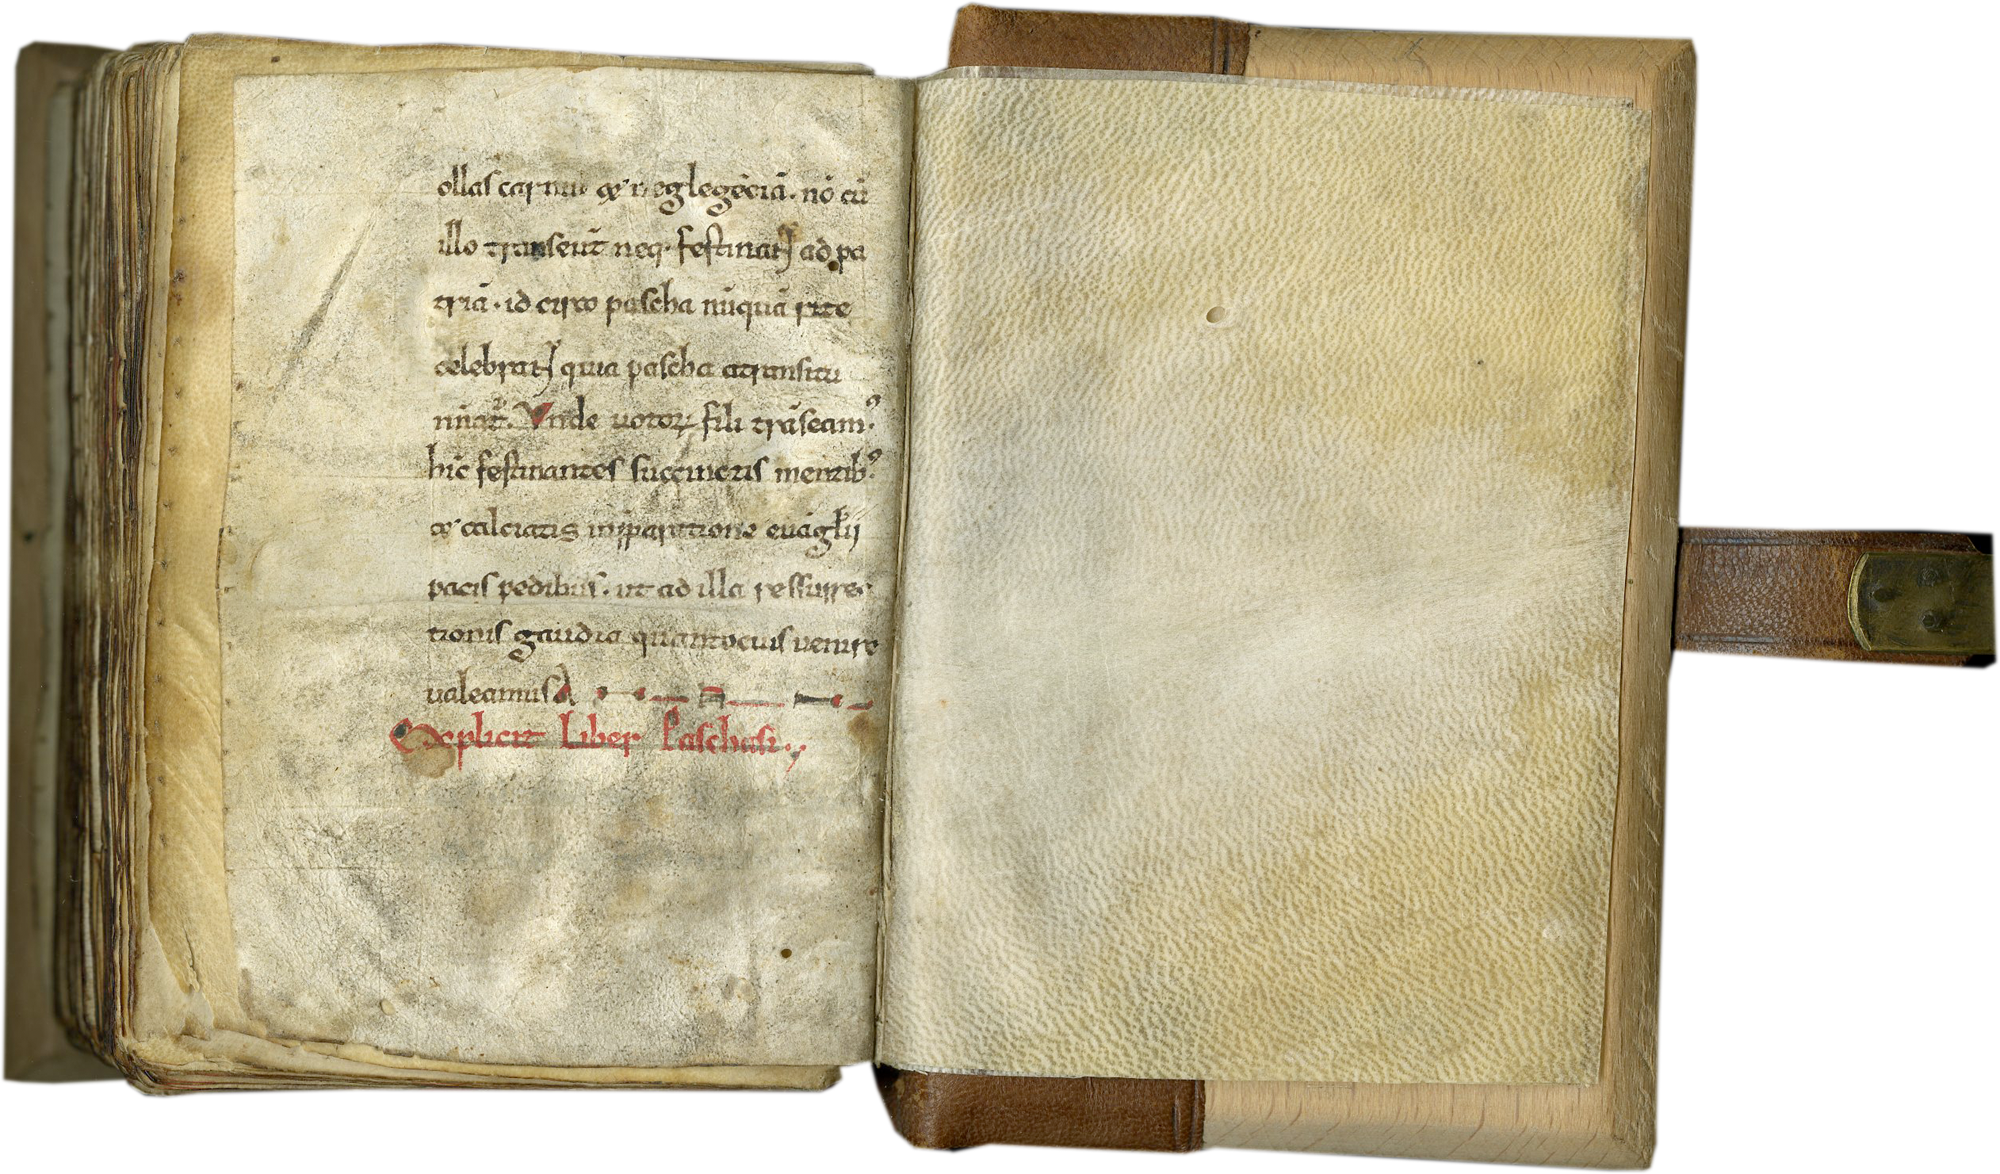 ollas carniũ & neglegẽciã. nõ cũ
illo transeũt neq; festinat ad pa
triã. id circo pascha nũquã rite
celebrat quia pascha atransitu
Vnde uotoꝝ fili trãseamꝰ
hĩc festinantes succinctis mentibꝰ
& calciatis inp̃paratione euãglii
pacis pedibus. ut ad illa ressurrec
tionis gaudia quantocius uenire
ualeamus
Explicit Liber Paschasi.